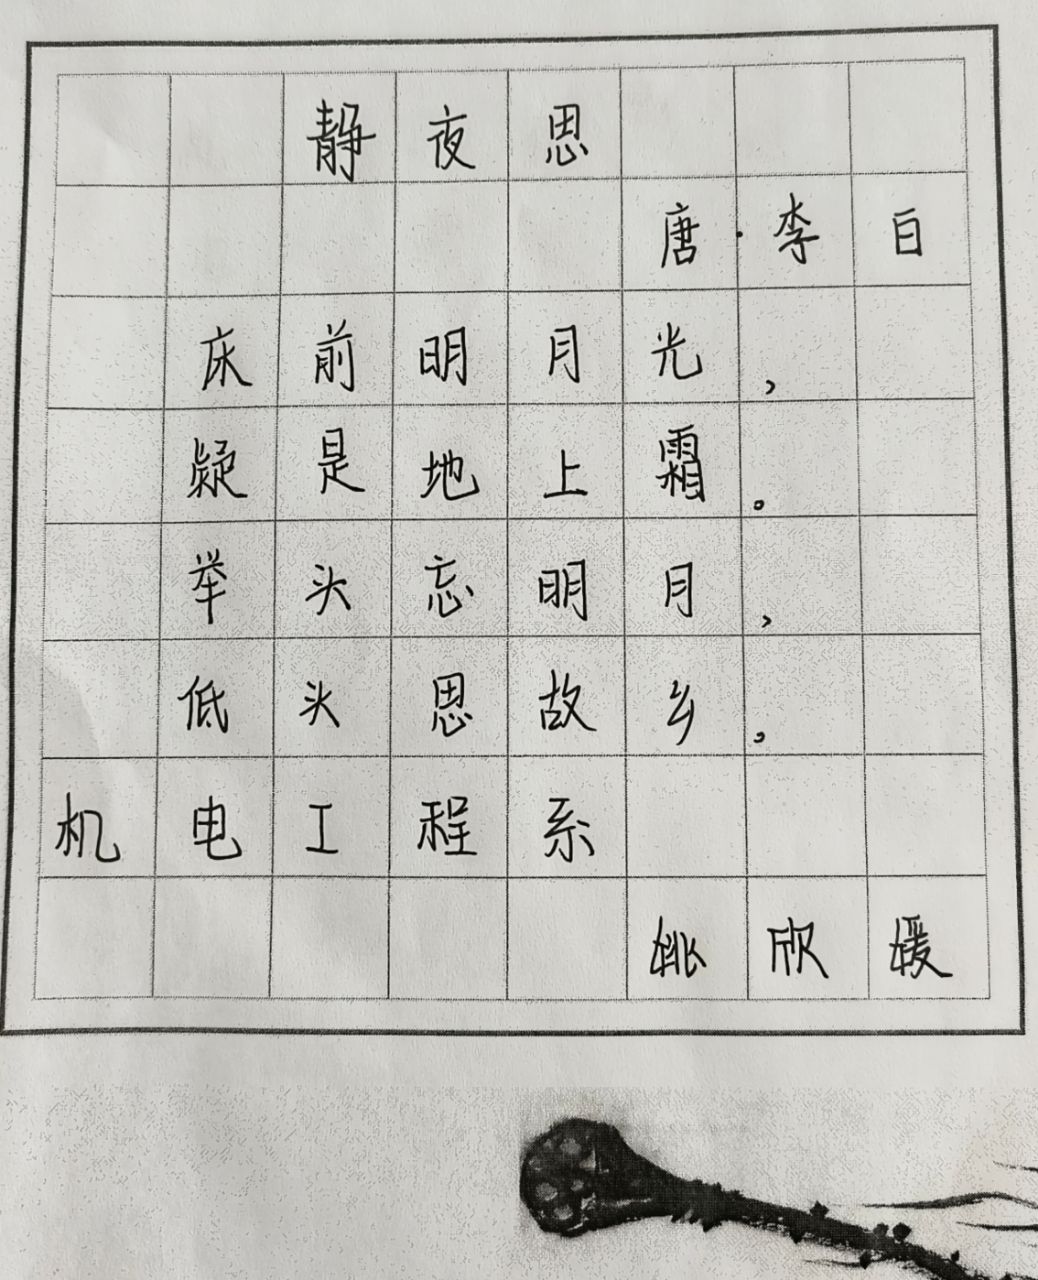 静夜思
唐·李白
床前明月光，
疑是地上霜。
举头忘明月，
低头思故乡，
机电工程系
姚欣媛